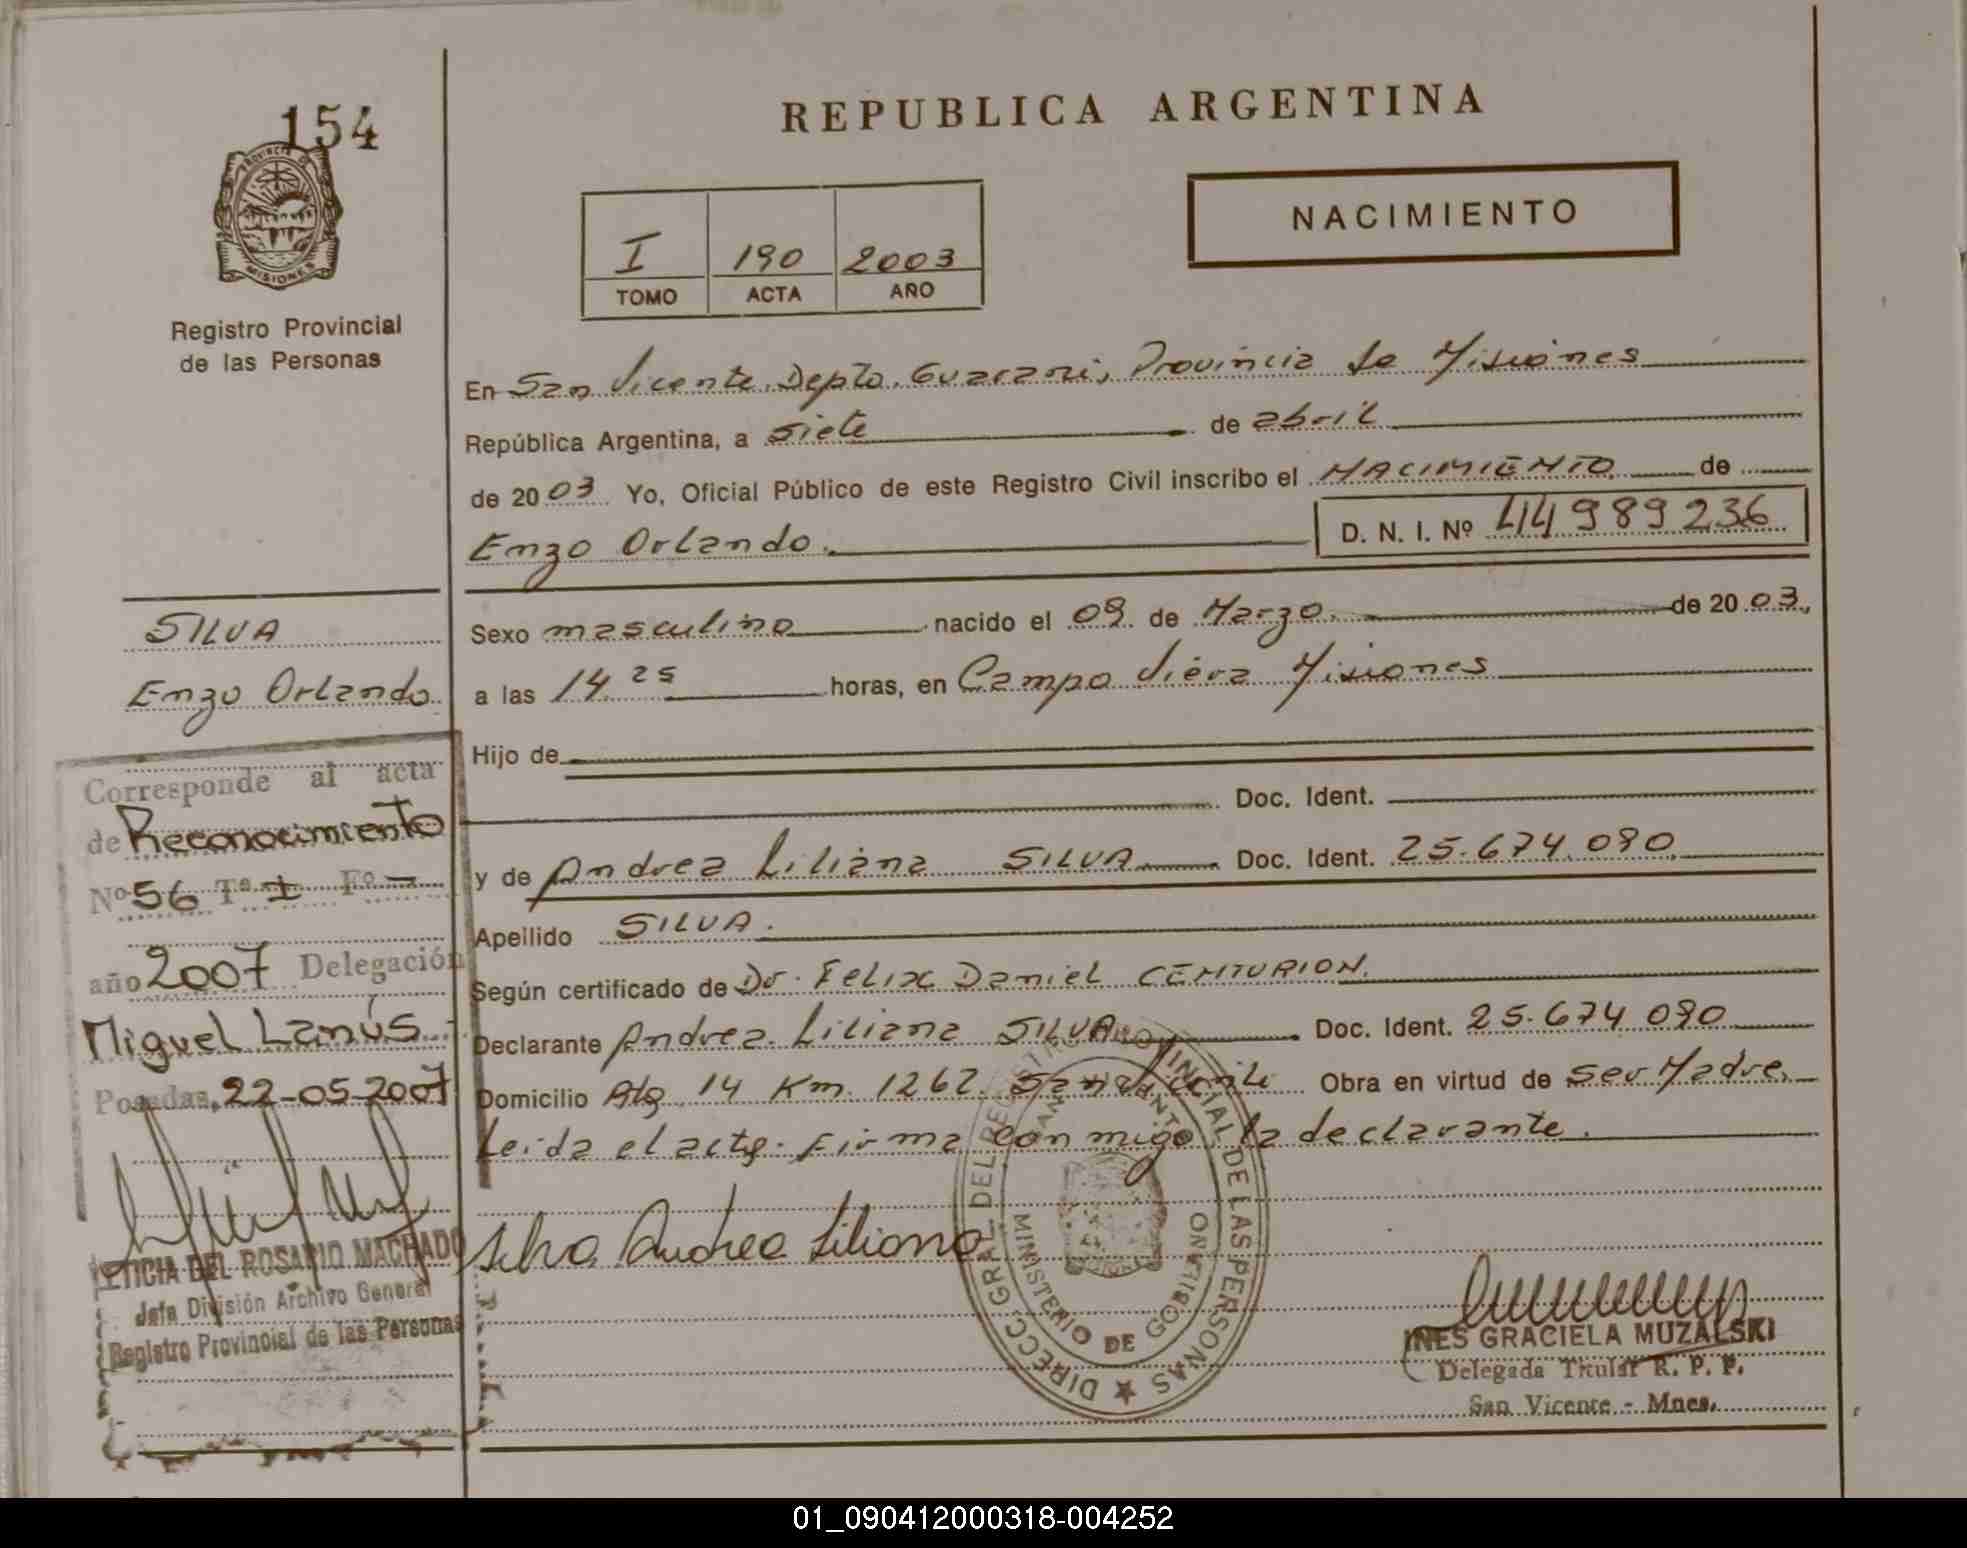 154
PROVINCIA DE
MISIONES
Registro Provincial
de las Personas
REPUBLICA ARGENTINA
NACIMIENTO
I 190 2003
TOMO ACTA AÑO
En San Vicente, Depto. Guarani, Provincia de Misiones
República Argentina, a siete de abril
de 2003 Yo, Oficial Público de este Registro Civil inscribo el NACIMIENTO de
Enzo Orlando. D. N. I. Nº 44989236
SILVA
Enzo Orlando
Sexo masculino nacido el 09 de Marzo. de 2003,
a las 14 25 horas, en Campo Viera Misiones
Hijo de
Doc. Ident.
y de Andrea Liliana SILVA Doc. Ident. 25.674.090
Apellido SILVA.
Según certificado de Dr. Felix Daniel CENTURION.
Declarante Andrea Liliana SILVA Doc. Ident. 25.674 090
Domicilio Rta 14 Km. 1262 San Vicente Obra en virtud de ser Madre.
Leida el acta. Firma conmigo la declarante.
Corresponde al acta
de Reconocimiento
Nº 56 Tº I Fº -
año 2007 Delegación
Miguel Lanús
Posadas, 22-05-2007
LETICIA DEL ROSARIO MACHADO
Jefa División Archivo General
Registro Provincial de las Personas
Silva Andrea Liliana
DIRECC. GRAL. DEL REGISTRO PROVINCIAL DE LAS PERSONAS
MINISTERIO DE GOBIERNO
INES GRACIELA MUZALSKI
Delegada Titular R. P. P.
San Vicente - Mnes.
01_090412000318-004252